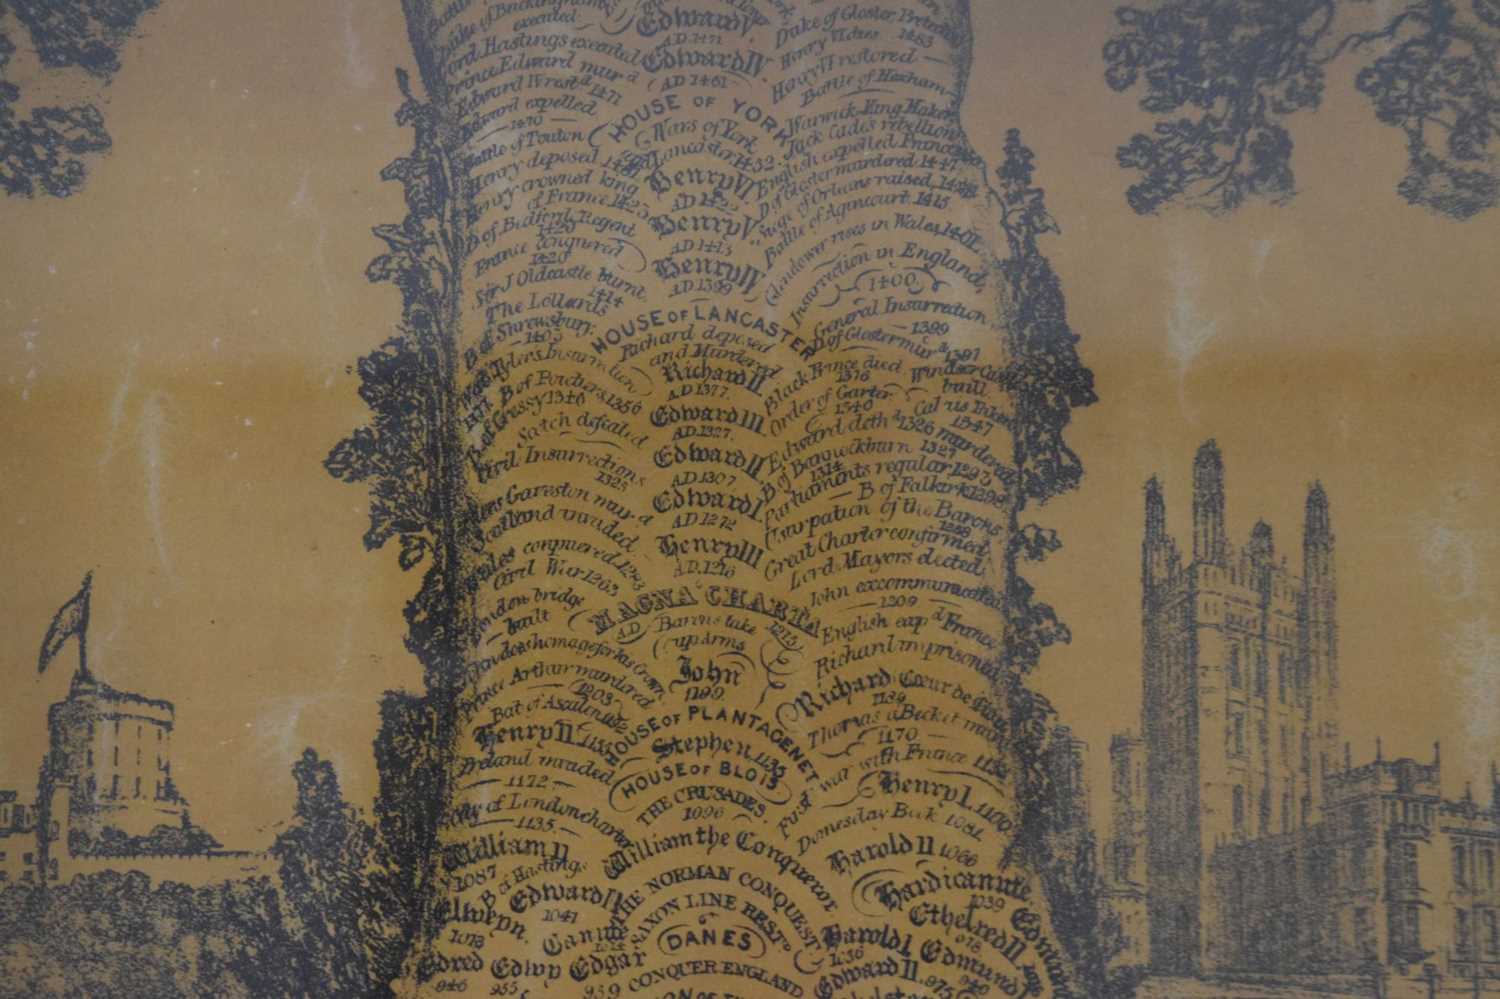 Duke of Buckingham
executed
Lord Hastings executed
Prince Edward mur.d
Edward IV rest.d 1471
Edward expelled
1470
Battle of Touton
Henry deposed 1461
Henry crowned king
of France 1423
D of Bedford Regent
1423
France conquered
1420
Sir J Oldcastle burnt,
1414
The Lollards
B of Shrewsbury.
1403
Wat Tylers Insurrection
B of Poictiers, 1356
B of Cressy 1346
Scotch defeated
Civil Insurrections
1325
Piers Gaveston mur.d
Scotland invaded
Wales conquered 1283
Civil War 1263
London bridge
built
Prince Arthur murdered
1203
Bat of Ascalon 1192
Henry II. 1154
Ireland invaded
1172
City of London charter
1135.
William II
1087
B of Hastings
Edward V.
AD 1471
Edward IV.
AD 1461
HOUSE OF YORK
Wars of York
and Lancaster, 1452.
Henry VI
AD 1422
Henry V.
AD 1413
Henry IV
AD 1399
HOUSE OF LANCASTER
Richard deposed
and Murdered
Richard II
A.D. 1377.
Edward III.
AD. 1327.
Edward II
A.D 1307
Edward I.
AD 1272
Henry III
A.D. 1216
MAGNA CHARTA
AD 1215
Barons take
up Arms
John
1199.
HOUSE OF PLANTAGENET
Stephen 1135
HOUSE OF BLOIS
THE CRUSADES
1096
William the Conqueror
THE NORMAN CONQUEST
SAXON LINE REST.D
DANES
CONQUER ENGLAND
Duke of Gloster Protector
Henry VI dies 1483
Henry VI restored
Battle of Hexham
Warwick King Maker
Jack Cades rebellion
English expelled France
D of Gloster murdered 1447
Siege of Orleans raised, 1428
Battle of Agincourt 1415
Glendower rises in Wales, 1401
Insurrection in England,
1400.
General Insurrection
1399
D of Gloster mur.d 1397
Black Prince died
1376
Windsor Castle
built
Order of Garter
1340
Calais taken
1347
Edward deth.d 1326 murdered
1327
B of Bannockburn
1314
Parliaments regular 1293
B of Falkirk 1298
Usurpation of the Barons
1258
Great Charter confirmed
Lord Mayors elected
John excommunicated
1209
English exp.d France
Richard imprisoned
Richard Cœur de Lion
1189
Thomas a Becket mur.d
1170
First war with France
Henry I. 1100
Domesday Book 1081
Harold II 1066
Hardicanute
1039
Ethelred II
978
Edmund
Edward II
1041
Canute
1014
Harold I
1036
Edmund
940
Edward II.
975
Edred
946
Edwy
955
Edgar
959